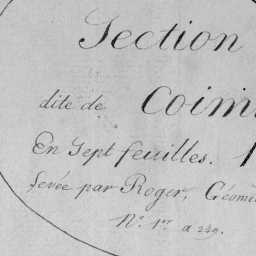 Section
dite de Coim
En Sept feuilles.
Levée par Roger, Géomè
N.º 1.er a 249.